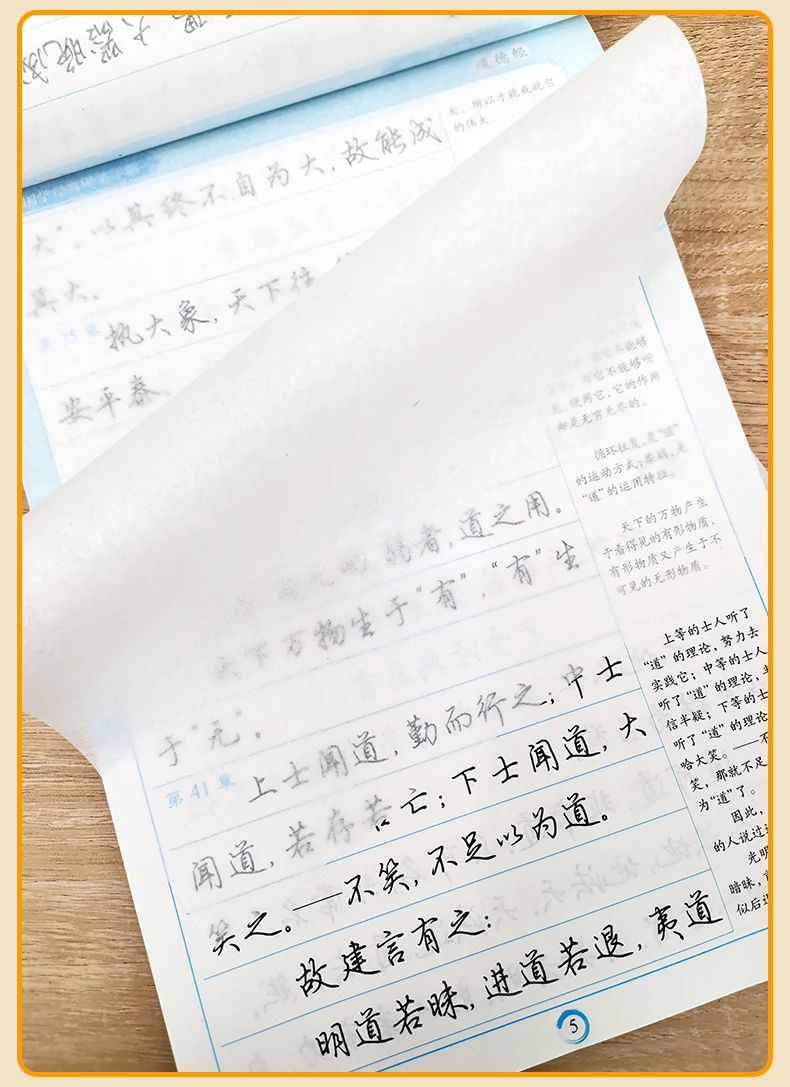 道德经
大，所以才能成就它
的伟大。
大"，以其终不自为大，故能成
其大。
第35章
执大象，天下往
安平泰
能够
它不能够听
使用它，它的作用
却是无穷无尽的。
循环往复，是"道"
的运动方式；柔弱，是
"道"的运用特征。
弱者，道之用。
天下的万物产生
于看得见的有形物质，
有形物质又产生于不
可见的无形物质。
天下万物生于"有"，"有"生
于"无"。
第41章
上士闻道，勤而行之；中士
闻道，若存若亡；下士闻道，大
笑之。——不笑，不足以为道。
故建言有之：
明道若昧，进道若退，夷道
上等的士人听了
"道"的理论，努力去
实践它；中等的士人
听了"道"的理论，半
信半疑；下等的士
听了"道"的理论
哈大笑。——不
笑，那就不足
为"道"了。
因此，
的人说过
光明
暗昧，
似后退
5